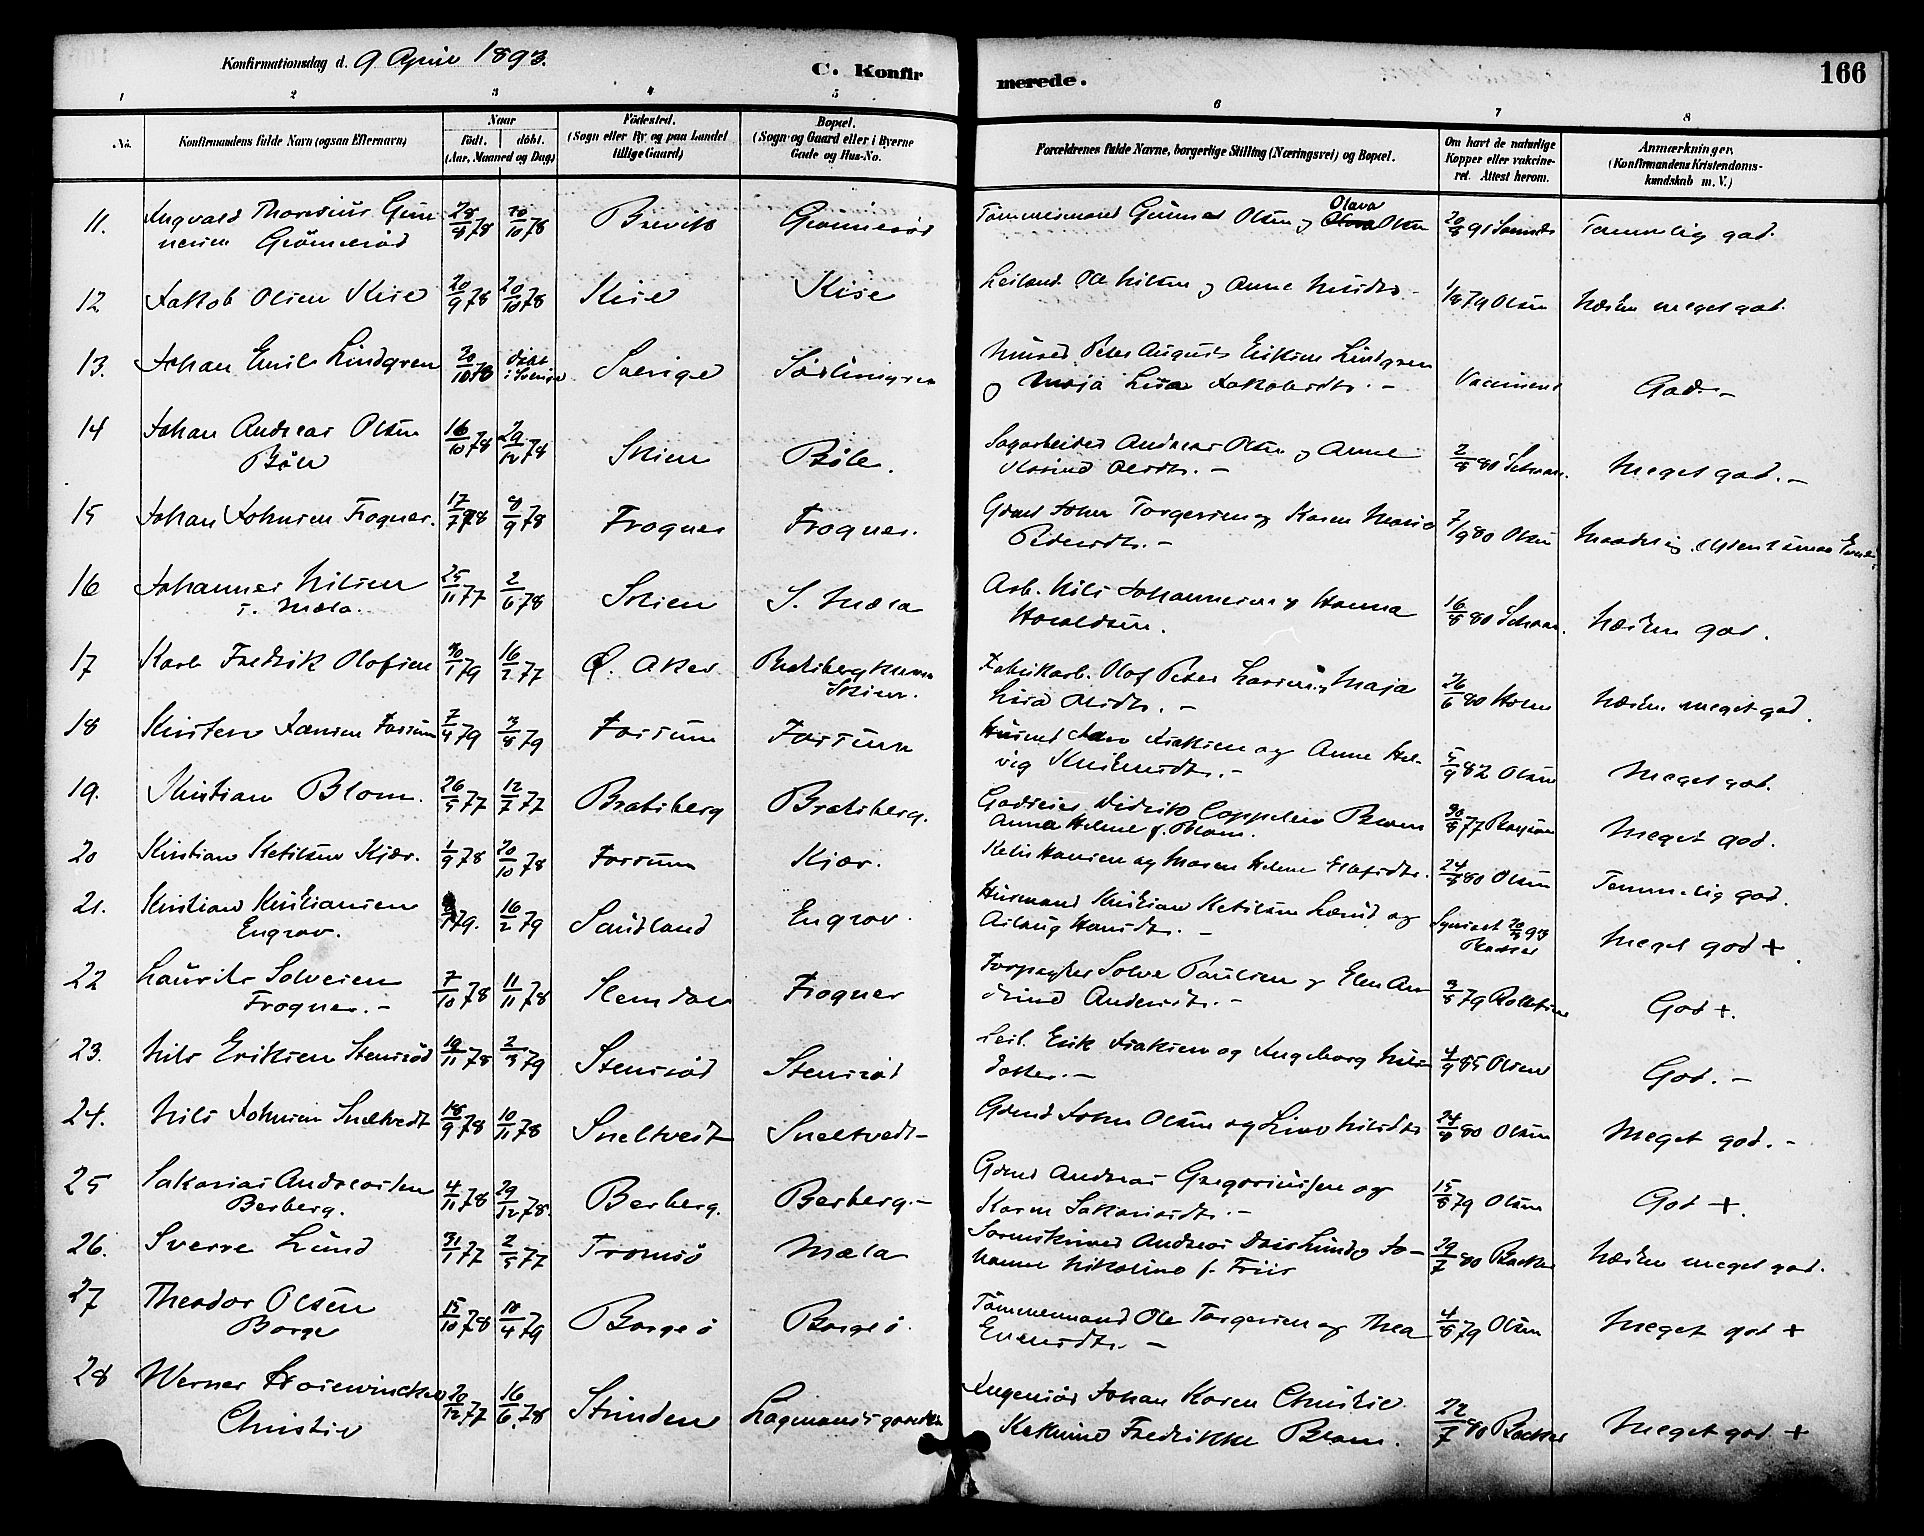 Konfirmationsdag d. 9 April 1893.
C. Konfirmerede.
166
1 2 3 4 5 6 7 8
No.
Konfirmandens fulde Navn (ogsaa Efternavn)
Naar
født. døbt.
(Aar, Maaned og Dag)
Fødested.
(Sogn eller By og paa Landet
tillige Gaard)
Bopæl.
(Sogn og Gaard eller i Byerne
Gade og Hus-No.
Forældrenes fulde Navne, borgerlige Stilling (Næringsvei) og Bopæl.
Om havt de naturlige
Kopper eller vakcine-
ret. Attest herom.
Anmærkninger.
(Konfirmandens Kristendoms-
kundskab m. V.)
11. Ingvald Thorvsius Gun 28/8 78 20/10 78 Brevik Grønnerød Tømmermand Gunnar Olsen og Olava Olsen 20/8 91 Temmelig god.
nesen Grønnerød
12 Jakob Olsen Kise 20/9 78 20/10 78 Kise Kise Leiland. Ole Nilsen og Anne Nilsdtr. 1/8 79 Olsen Næsten meget god.
13. Johan Emil Lindgren 20/10 78 døbt i Sverige Sverige Murer Peter August Eriksen Lindgren
og Maja Lisa Jakobsdtr. - God. -
14 Johan Andreas Olsen 16/10 78 29/12 78 Skien Bøle. Sagarbeider Andreas Olsen og Anne
Bøle Olsdtr. - 2/8 80 Meget god. -
15 Johan Johnsen Frogner. 17/7 78 8/9 78 Frogner Frogner. Gdmd John Torgersen og Karen Maria
Pedersdtr. - 7/9 80 Olsen
16 Johannes Nilsen 25/11 77 2/6 78 Skien S. Mæla Arb. Nils Johannesen og Hanna
S. Mæla. Haraldsen. 16/8 80 Næsten god.
17 Karl Fredrik Olofsen 30/1 79 16/2 77 Ø. Aker Bratsbergkleven
Skien. Fabrikarb. Olof Peter Larsen og Maja
Lisa Olsdtr. - 26/6 80 Holm Næsten meget god.
18 Kirsten Jansen Fossum 7/4 79 3/8 79 Fossum Fossum Husmd Jan Isaksen og Anne Hel-
vig Knudsdtr. - 5/9 82 Olsen Meget god.
19. Kristian Blom. 26/5 77 12/7 77 Bratsberg Bratsberg. Godseier Didrik Cappelen Blom
Anna Helene f. Blom. 30/8 77 Meget god.
20 Kristian Ketilsen Kjær. 1/9 78 20/10 78 Fossum Kjær. Ketil Hansen og Maren Helene 24/8 80 Olsen Temmelig god.
21. Kristian Kristiansen 79. 16/2 79 Sandland Engrav. Husmand Kristian Ketilsen Lerud og
Engrav. Aslaug Hansdtr. - Meget god +.
22 Laurits Solvesen 7/10 78 11/11 78 Slemdal Frogner Forpagter Solve Paulsen og Elen An
Frogner. - drine Andersdtr. - 9/8 79 God +.
23. Nils Eriksen Stensrød 19/11 78 2/3 79 Stensrød Stensrød Leil. Erik Isaksen og Ingeborg Nils
datter. - 4/9 85 Olsen God. -
24. Nils Johnsen Sneltvedt 18/9 78 10/11 78 Sneltvedt Sneltvedt Gdmd John Olsen og Live Nilsdtr 24/8 80 Olsen Meget god. -
25 Sakarias Andreassen 4/11 78 29/12 78. Berberg. Berberg. - Gdmd Andreas Gregoriussen og
Berberg. Karen Sakariasdtr. - 15/8 79 Olsen God +.
26. Sverre Lund 31/1 77 2/5 77 Tromsø Mæla Sorenskriver Andreas Lund og Jo-
hanne Nikoline f. Friis 29/7 80 Backer Næsten meget god.
27 Theodor Olsen 15/10 78 10/4 79 Borgeø Borgeø. Tømmermand Ole Torgersen og Thea
Borge Evensdtr. - 4/8 79 Olsen Meget god +
28 Werner Hosewinckel 20/12 77 16/6 78 Strinden Lagmandsgaarden Ingeniør Johan Koren Christie.
Christie Katrine Fredrikke Blom. 22/7 80 Backer Meget god. +